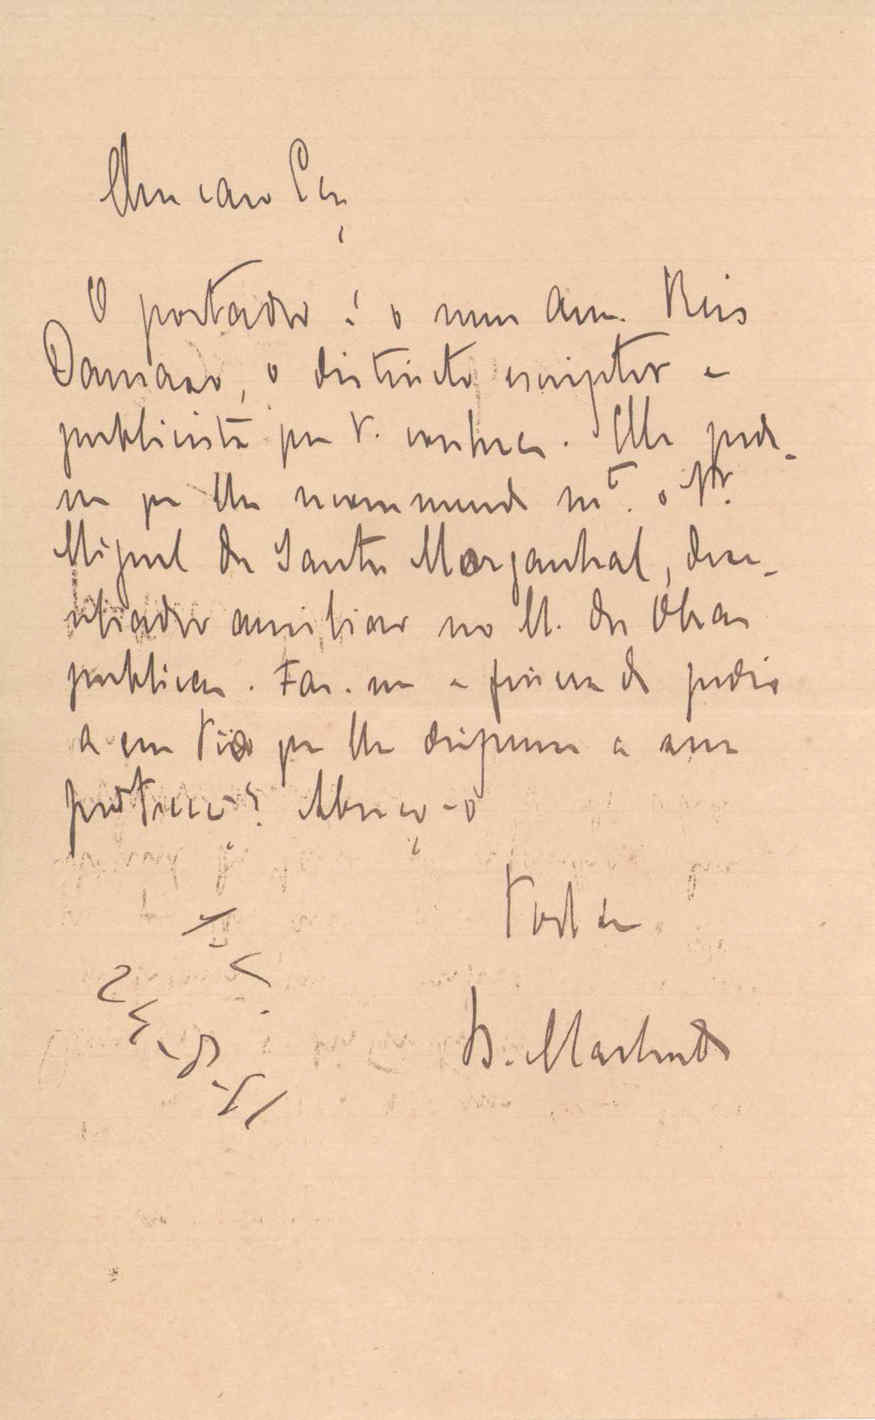 Meu caro
O portador é o meu am. Reis
Damaso, o distincto escriptor e
publicista que V. conhece. Elle pede-
me que lhe recommende mt.º o Sr.
Miguel dos Santos Morganhal, dese-
nhador auxiliar no M. das Obras
publicas. Faz-me a fineza de pedir
a seu Tio que lhe dispense a sua
protecção? Abraço-o
Todo seu
B. Machado